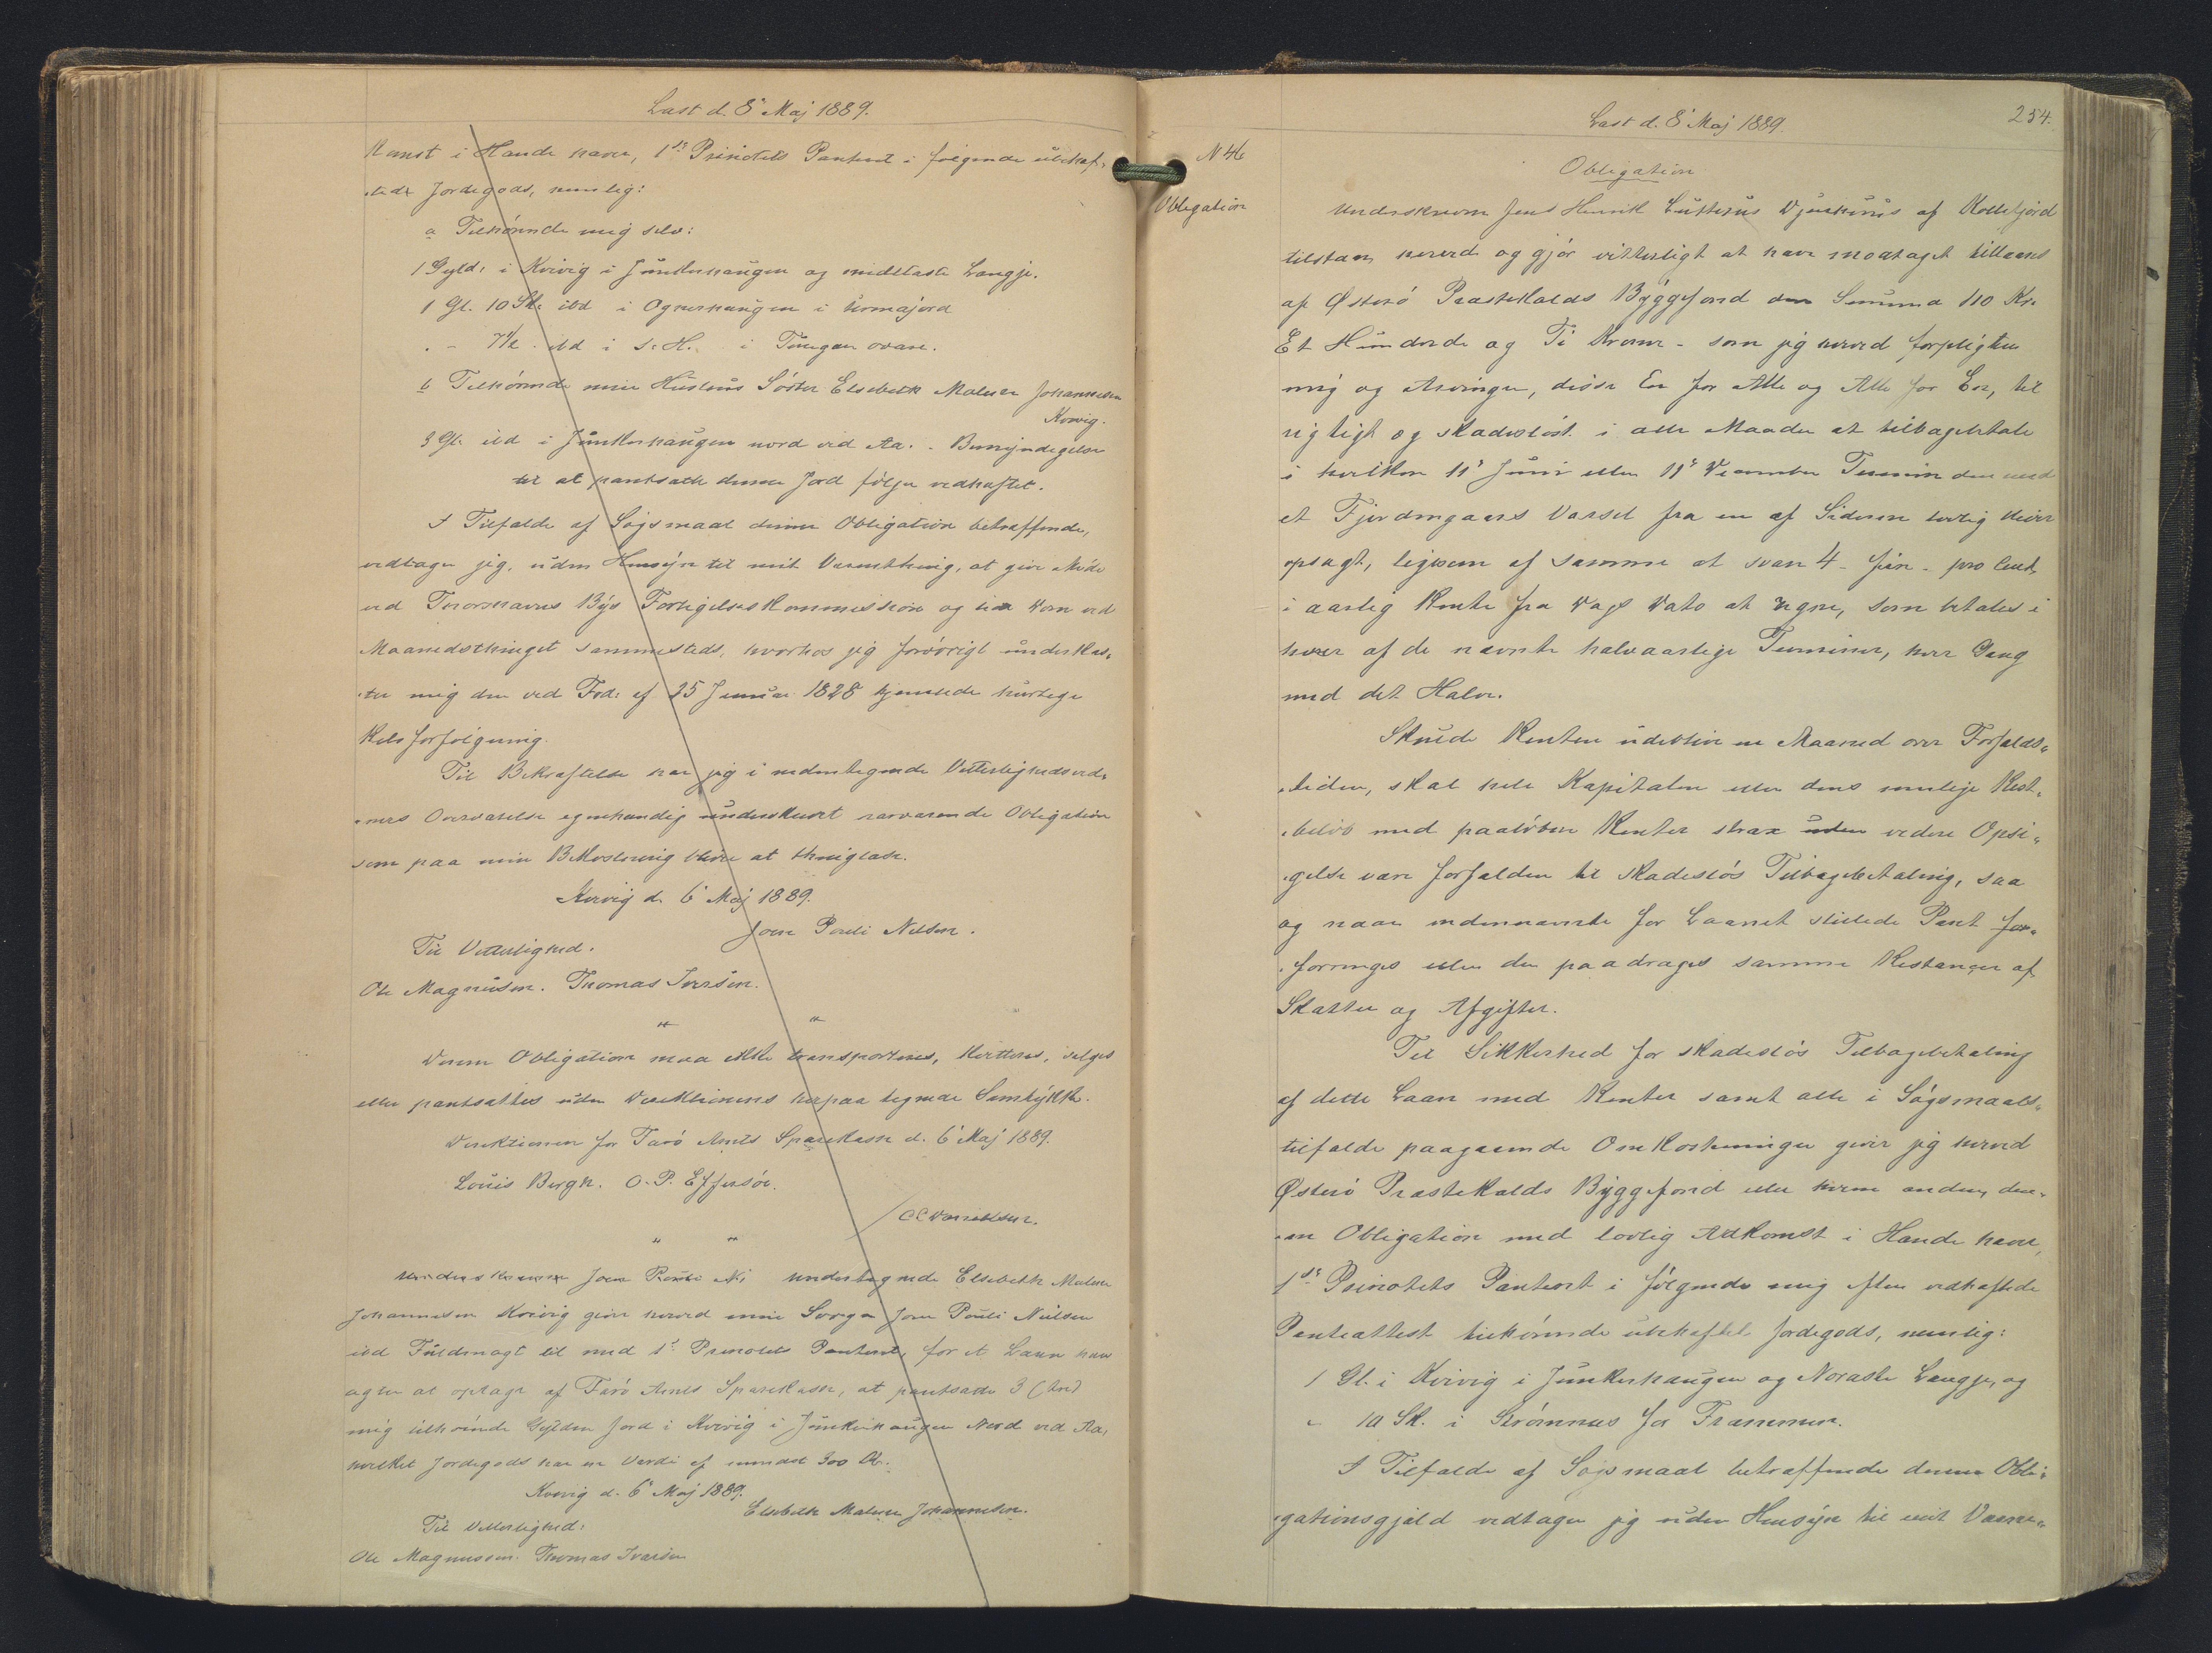 Læst d. 8' Maj 1889.
komst i Hænde haver, 1ste Prioritets Panteret i følgende ubehæf-
tede Jordegods, nemlig:
a Tilhørende mig selv:
1 Gyld: i Kvivig i Junkerhaugen og midtlaste Længje.
1 Gl. 10 Sk. ibd i Ognerhaugen i
" - 7½ - ibd i S: H. i Túnegan ovare.
b Tilhørende min Hustrus Søster Elsebeth Malene Johannesen
Kvivig.
3 Gl. ibd i Junkerhaugen nord ved Aa. - Bemyndigelse
til at pantsætte denne Jord følger vedhæftet.
I Tilfælde af Søgsmaal denne Obligation betræffende,
vedtager jeg, uden Hensyn til mit Værnething, at give Møde
ved Thorshavns Bys Forligelseskommission og tåle Dom ved
Maanedsthinget sammesteds, hvorhos jeg forøvrigt underkas-
ter mig den ved Frd: af 25 Januar 1828 hjemlede hurtige
Retsforfølgning.
Til Bekræftelse har jeg i medundertegnede Vitterlighedsvid-
ners Overværelse egenhændig underskrevet nærværende Obligation
som paa min Bekostning bliver at thinglæse.
Kvivig d. 6' Maj 1889.
Joen Pouli Nielsen.
Til Vitterlighed.
Ole Magnusen. Thomas Iversen.
" "
Denne Obligation maa ikke transporteres, kvitteres, sælges
eller pantsættes uden Direktionens herpaa tegnede Samtykke.
Direktionen for Færø Amts Sparekasse d. 6' Maj 1889.
Louis Bergh. O. P. Effersøe.
C C Danielsen.
" "
Underskrevne Joen Pouli Ni undertegnede Elsebeth Malene
Johannesen Kvivig giver herved min Svoger Joen Pouli Nielsen
ibd Fuldmagt til med 1' Prioritets Panteret, for et Laan han
agter at optage af Færø Amts Sparekasse, at pantsætte 3 (tre)
mig tilhørende Gylden Jord i Kvivig i Junkerhaugen Nord ved Aa,
hvilket Jordegods har en Værdi af mindst 300 Kr.
Kvivig d. 6' Maj 1889.
Elsebeth Malene Johannesen.
Til Vitterlighed:
Ole Magnussen. Thomas Ivarsen
Læst d. 8' Maj 1889.
254.
N 46
Obligation
Obligation
Underskrevne Jens Henrik Lutterus Djurhuus af Kollefjord
tilstaar herved og gjør vitterligt at have modtaget tillaans
af Østerø Præstekalds Byggefond den Summa 110 Kr.
Et Hundrede og Ti Kroner - som jeg herved forpligter
mig og Arvinger, disse En for Alle og Alle for En, til
rigtigt og skadesløst i alle Maader at tilbagebetale
i hvilken 11' Juni eller 11' December Termin den med
et Fjerdingaars Varsel fra en af Siderne lovlig bliver
opsagt, ligesom af samme at svare 4 - fire - pro Cent,
i aarlig Rente fra Dags Dato at regne, som betales i
hver af de nævnte halvaarlige Terminer, hver Gang
med det Halve.
Skulde Renten udeblive en Maaned over Forfalds-
tiden, skal hele Kapitalen eller dens mulige Rest-
beløb med paaløbne Renter strax uden videre Opsi-
gelse være forfalden til skadesløs Tilbagebetaling, saa
og naar nedennævnte for Laanet stillede Pant for-
forringes eller der paadrages samme Restancer af
Skatter og Afgifter.
Til Sikkerhed for skadesløs Tilbagebetaling
af dette Laan med Renter samt alle i Søgsmaals-
tilfælde paagaaende Omkostninger giver jeg herved
Østerø Præstekalds Byggefond eller hvem anden, den-
ne Obligation med lovlig Adkomst i Hænde haver,
1ste Prioritets Panteret i følgende mig efter vedhæftede
Panteattest tilhørende ubehæftet Jordegods, nemlig:
1 Gl. i Kvivig i Junkerhaugen og Noraste Længje, og
" 10 Sk. i Strømnæs for Frammen.
I Tilfælde af Søgsmaal betræffende denne Obli-
gationsgjæld vedtager jeg uden Hensyn til mit Værne-